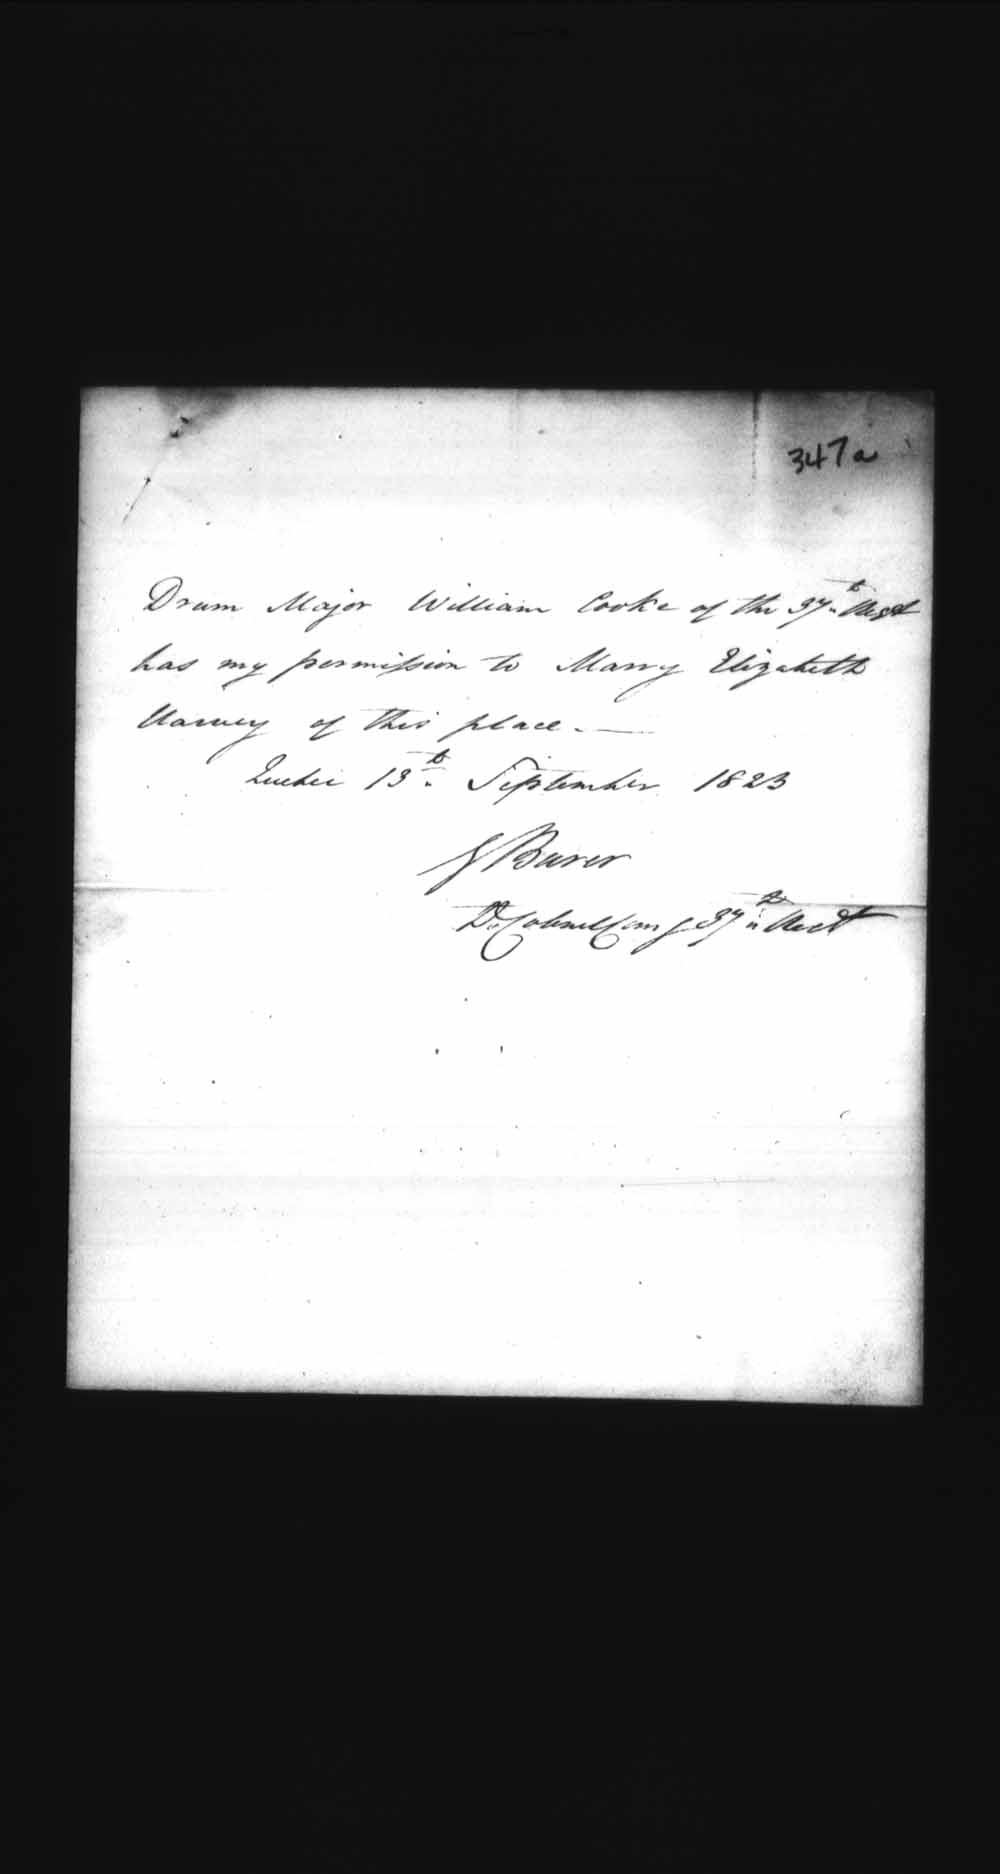 347a
Drum Major William Cooke of the 37th Regt
has my permission to Marry Elizabeth
Harvey of this place. —
Quebec 13th September 1823
Colonel Comg 37th Regt